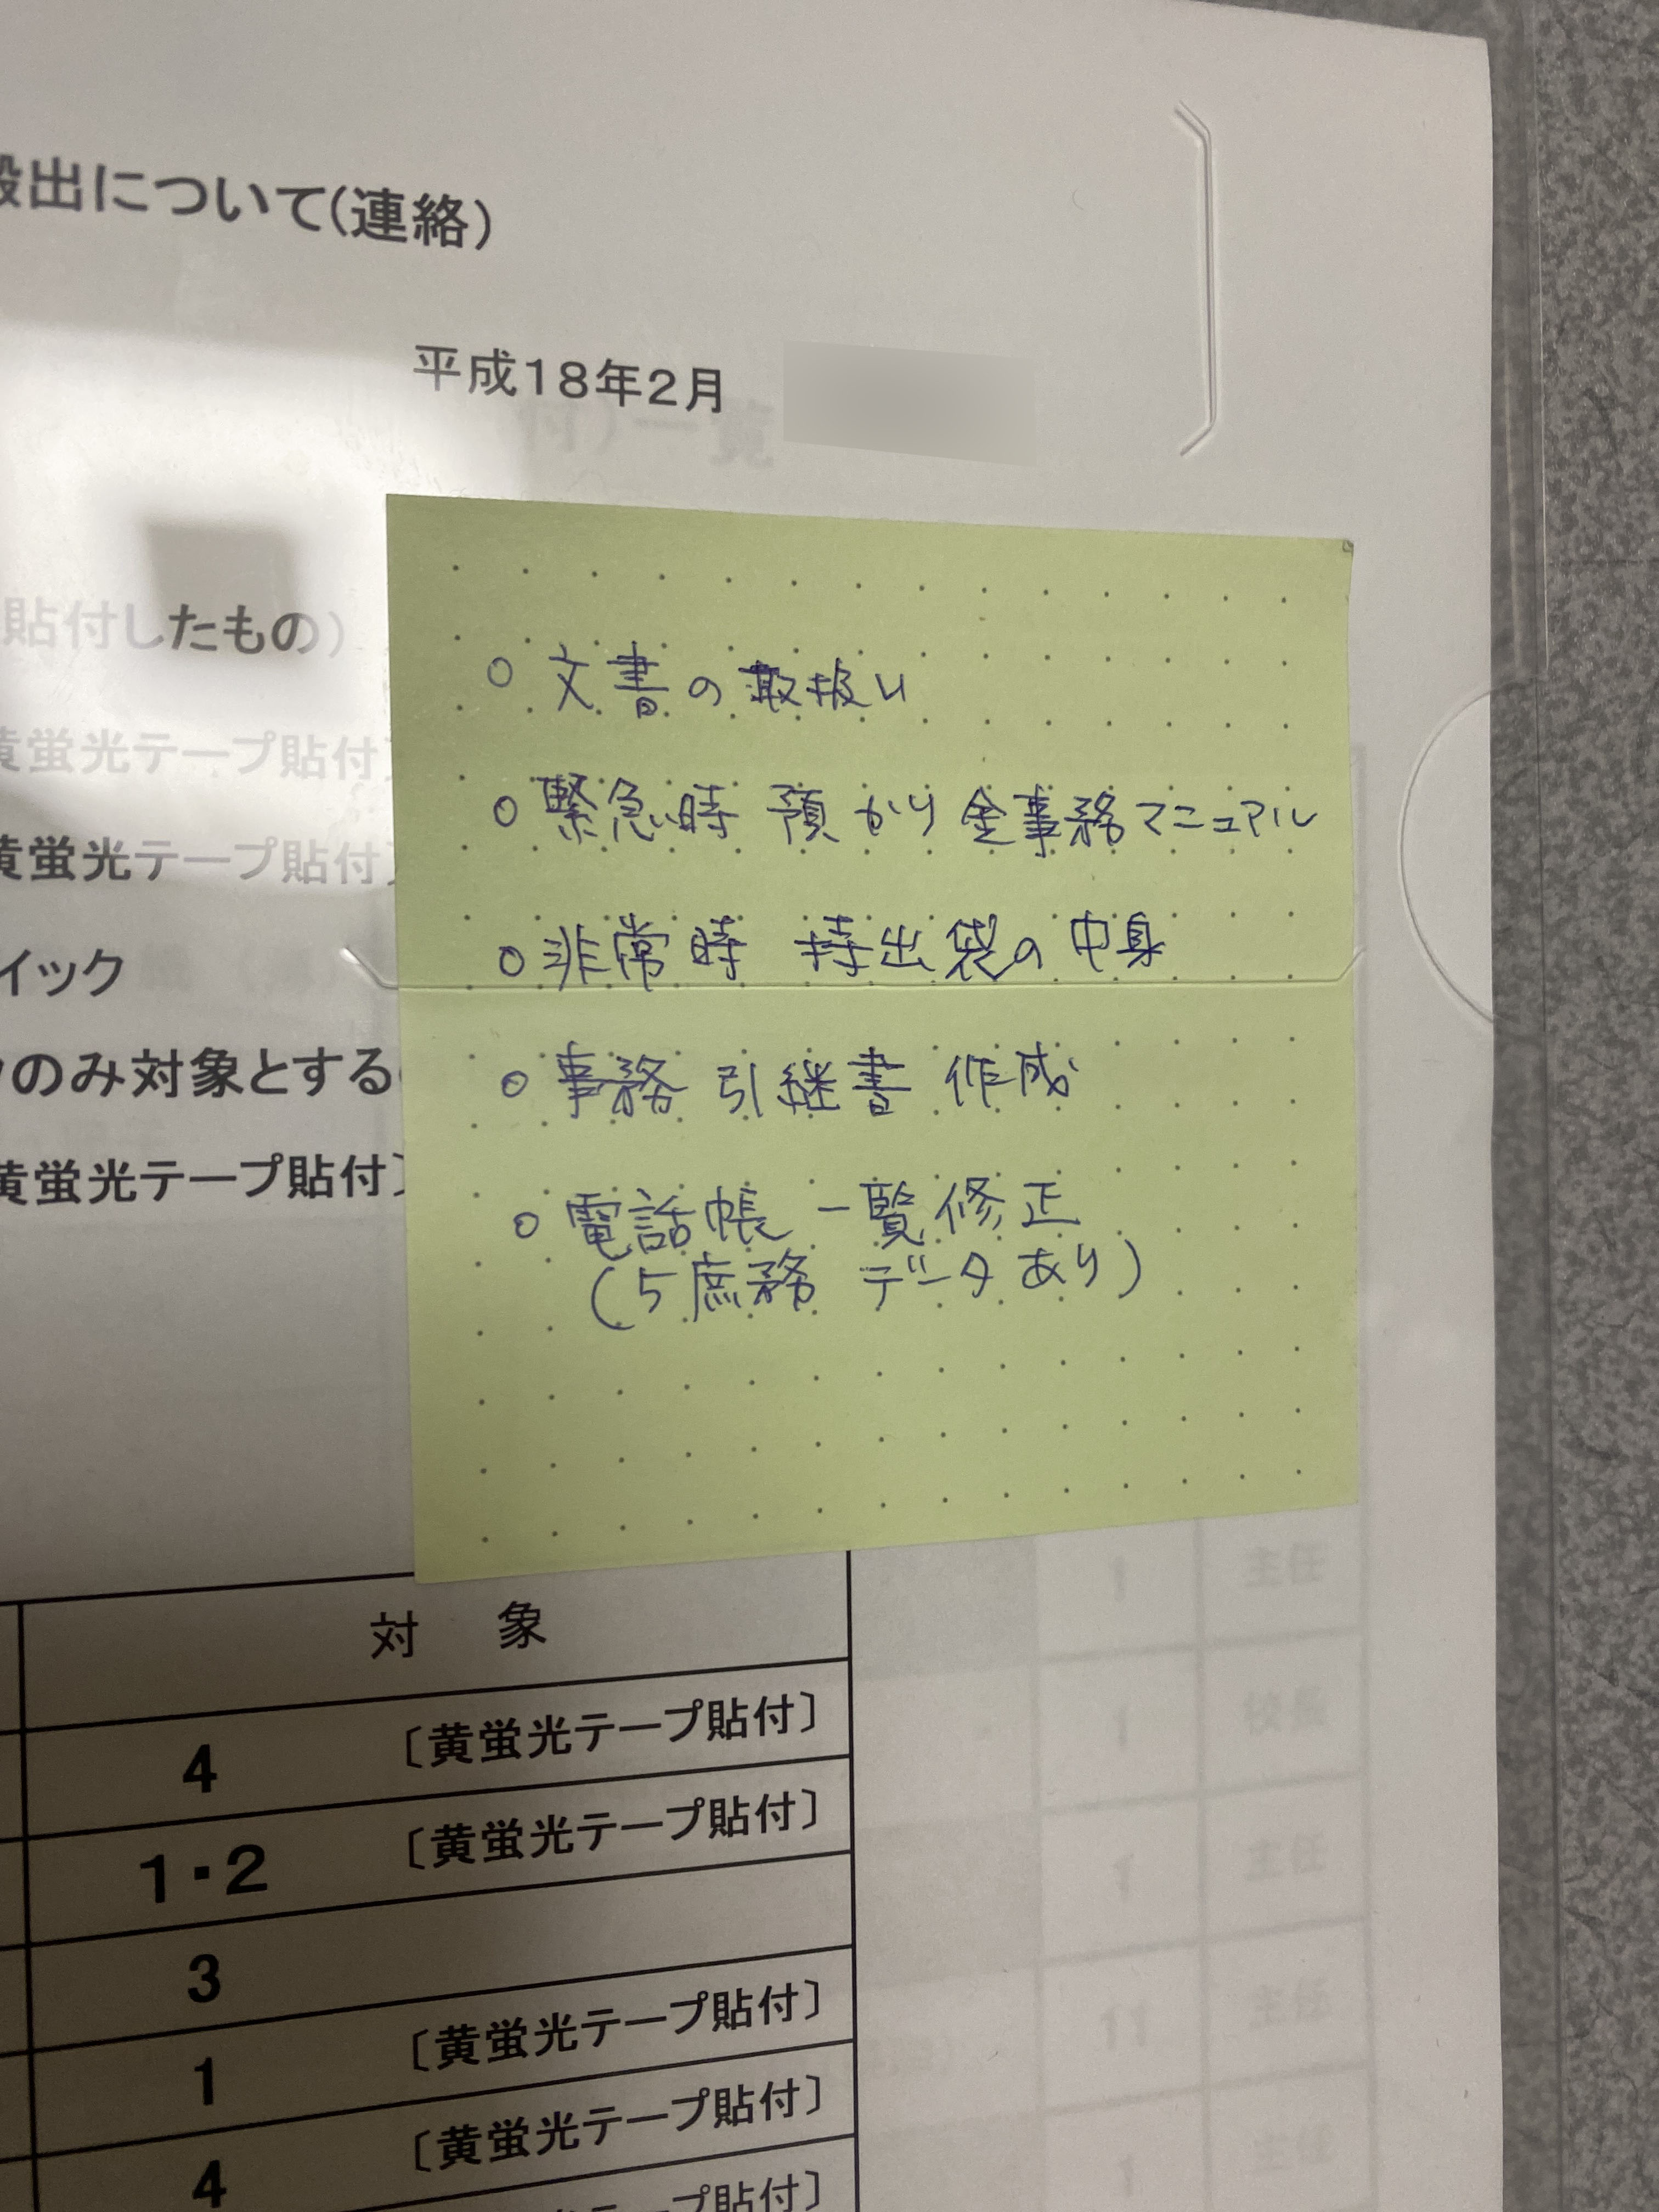 搬出について(連絡)
平成18年2月
付)一覧
貼付したもの)
黄蛍光テープ貼付〕
○ 文書の取扱い
○ 緊急時 預かり金事務マニュアル
黄蛍光テープ貼付〕
○ 非常時 持出袋の中身
イック
のみ対象とする
○ 事務引継書 作成
黄蛍光テープ貼付〕
○ 電話帳一覧修正
(5庶務 データあり)
対 象
1 主任
4 〔黄蛍光テープ貼付〕
1
1・2 〔黄蛍光テープ貼付〕
1 主任
3
11 主任
1 〔黄蛍光テープ貼付〕
1 主任
4 〔黄蛍光テープ貼付〕
テープ貼付〕